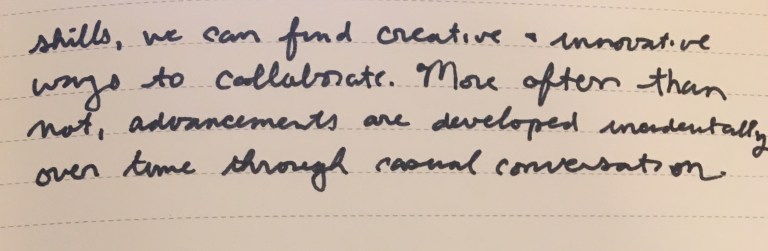 skills, we can find creative + innovative
ways to collaborate. More often than
not, advancements are developed incidentally
over time through casual conversation.